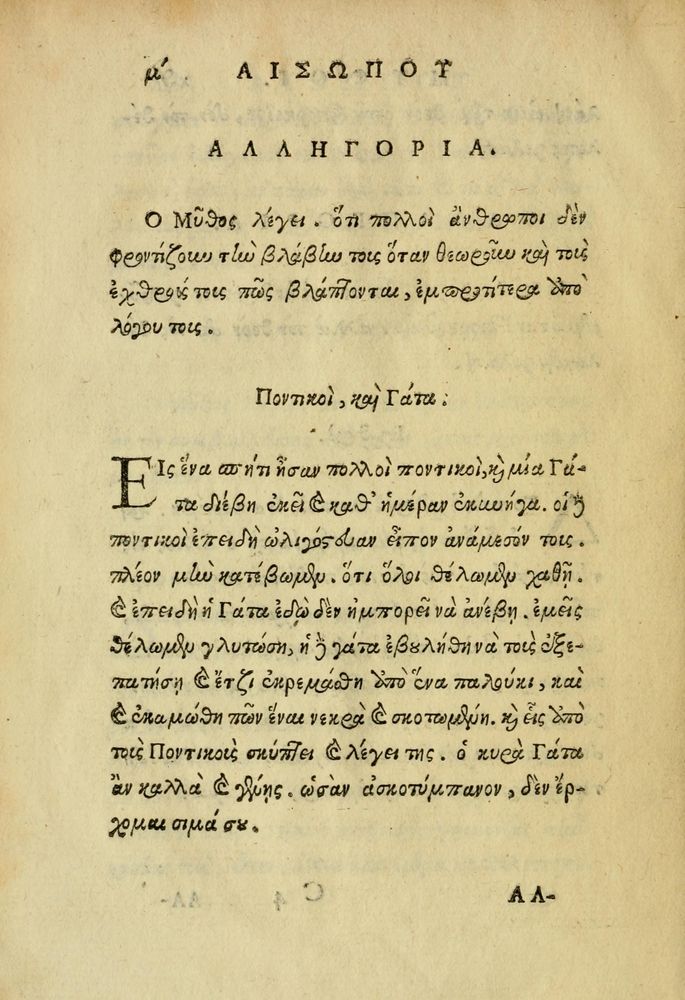 μ' ΑΙΣΩΠΟΥ
ΑΛΛΗΓΟΡΙΑ.
Ο Μῦθος λέγει. ὅτι πολλοὶ ἄνθρωποι δὲν
φροντίζουν τὴν βλάβην τοις ὅταν θεωροῦν καὶ τοις
ἐχθροίς τοις πῶς βλάπτονται, ἐμπροτίτερα ἀπὸ
λόγου τοις.
Ποντικοὶ, καὶ Γάτα.
ΕΙς ἕνα σπήτι ἦσαν πολλοὶ ποντικοὶ, καὶ μία Γά-
τα διέβη ἐκεῖ καὶ καθ' ἡμέραν ἐκυνήγα. οἱ δὲ
ποντικοὶ ἐπειδὴ ὠλιγόστευαν εἶπον ἀνάμεσόν τοις.
πλέον μὴν κατέβωμεν. ὅτι ὅλοι θέλομεν χαθῆ.
καὶ ἐπειδὴ ἡ Γάτα ἐδῶ δὲν ἠμπορεῖ νὰ ἀνέβη. ἐμεῖς
θέλομεν γλυτώση, ἡ δὲ γάτα ἐβουλήθη νὰ τοὶς ἐξε-
πατήση καὶ ἔτζι ἐκρεμάθη ἀπὸ ἕνα παλούκι, καὶ
καὶ ἐκαμώθη πῶν ἕναι νεκρὰ καὶ σκοτωμένη. καὶ εἷς ἀπὸ
τοὶς Ποντικοὶς σκύπτει καὶ λέγει της. ὁ κυρὰ Γάτα
ἂν καλλὰ καὶ γένης. ὡσὰν ἀσκοτύμπανον, δὲν ἔρ-
χομαι σιμά σου.
ΑΛ-